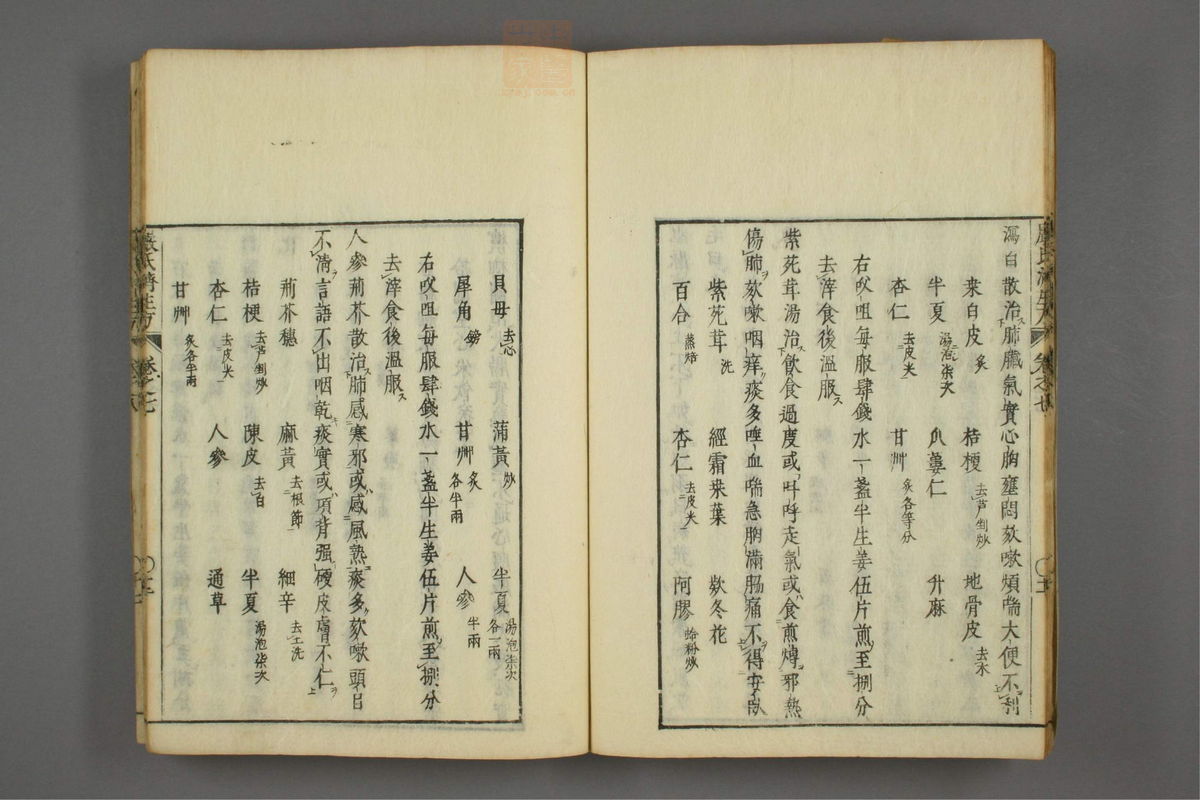 瀉白散治肺臟氣實心胸壅悶欬嗽煩喘大便不利
桒白皮 炙 桔梗 去芦剉炒 地骨皮 去木
半夏 湯泡柒次 瓜蔞仁 升麻
杏仁 去皮尖 甘艸 炙各等分
右㕮咀每服肆錢水一盞半生姜伍片煎至捌分
去滓食後溫服
紫菀茸湯治飲食過度或叫呼走氣或食煎煿邪熱
傷肺欬嗽咽痒痰多唾血喘急胸滿脇痛不得安臥
紫菀茸 洗 經霜桒葉 欵冬花
百合 蒸焙 杏仁 去皮尖 阿膠 蛤粉炒
貝母 去心 蒲黃 炒 半夏 湯泡柒次各一兩
犀角 鎊 甘艸 炙各半兩 人參 半兩
右㕮咀每服肆錢水一盞半生姜伍片煎至捌分
去滓食後溫服
人參荊芥散治肺感寒邪或感風熱痰多欬嗽頭目
不淸言語不出咽乾痰實或項背强硬皮膚不仁
荊芥穗 麻黃 去根節 細辛 去土洗
桔梗 去芦剉炒 陳皮 去白 半夏 湯泡柒次
杏仁 去皮尖 人參 通草
甘艸 炙各半兩
嚴氏濟生方 卷之七